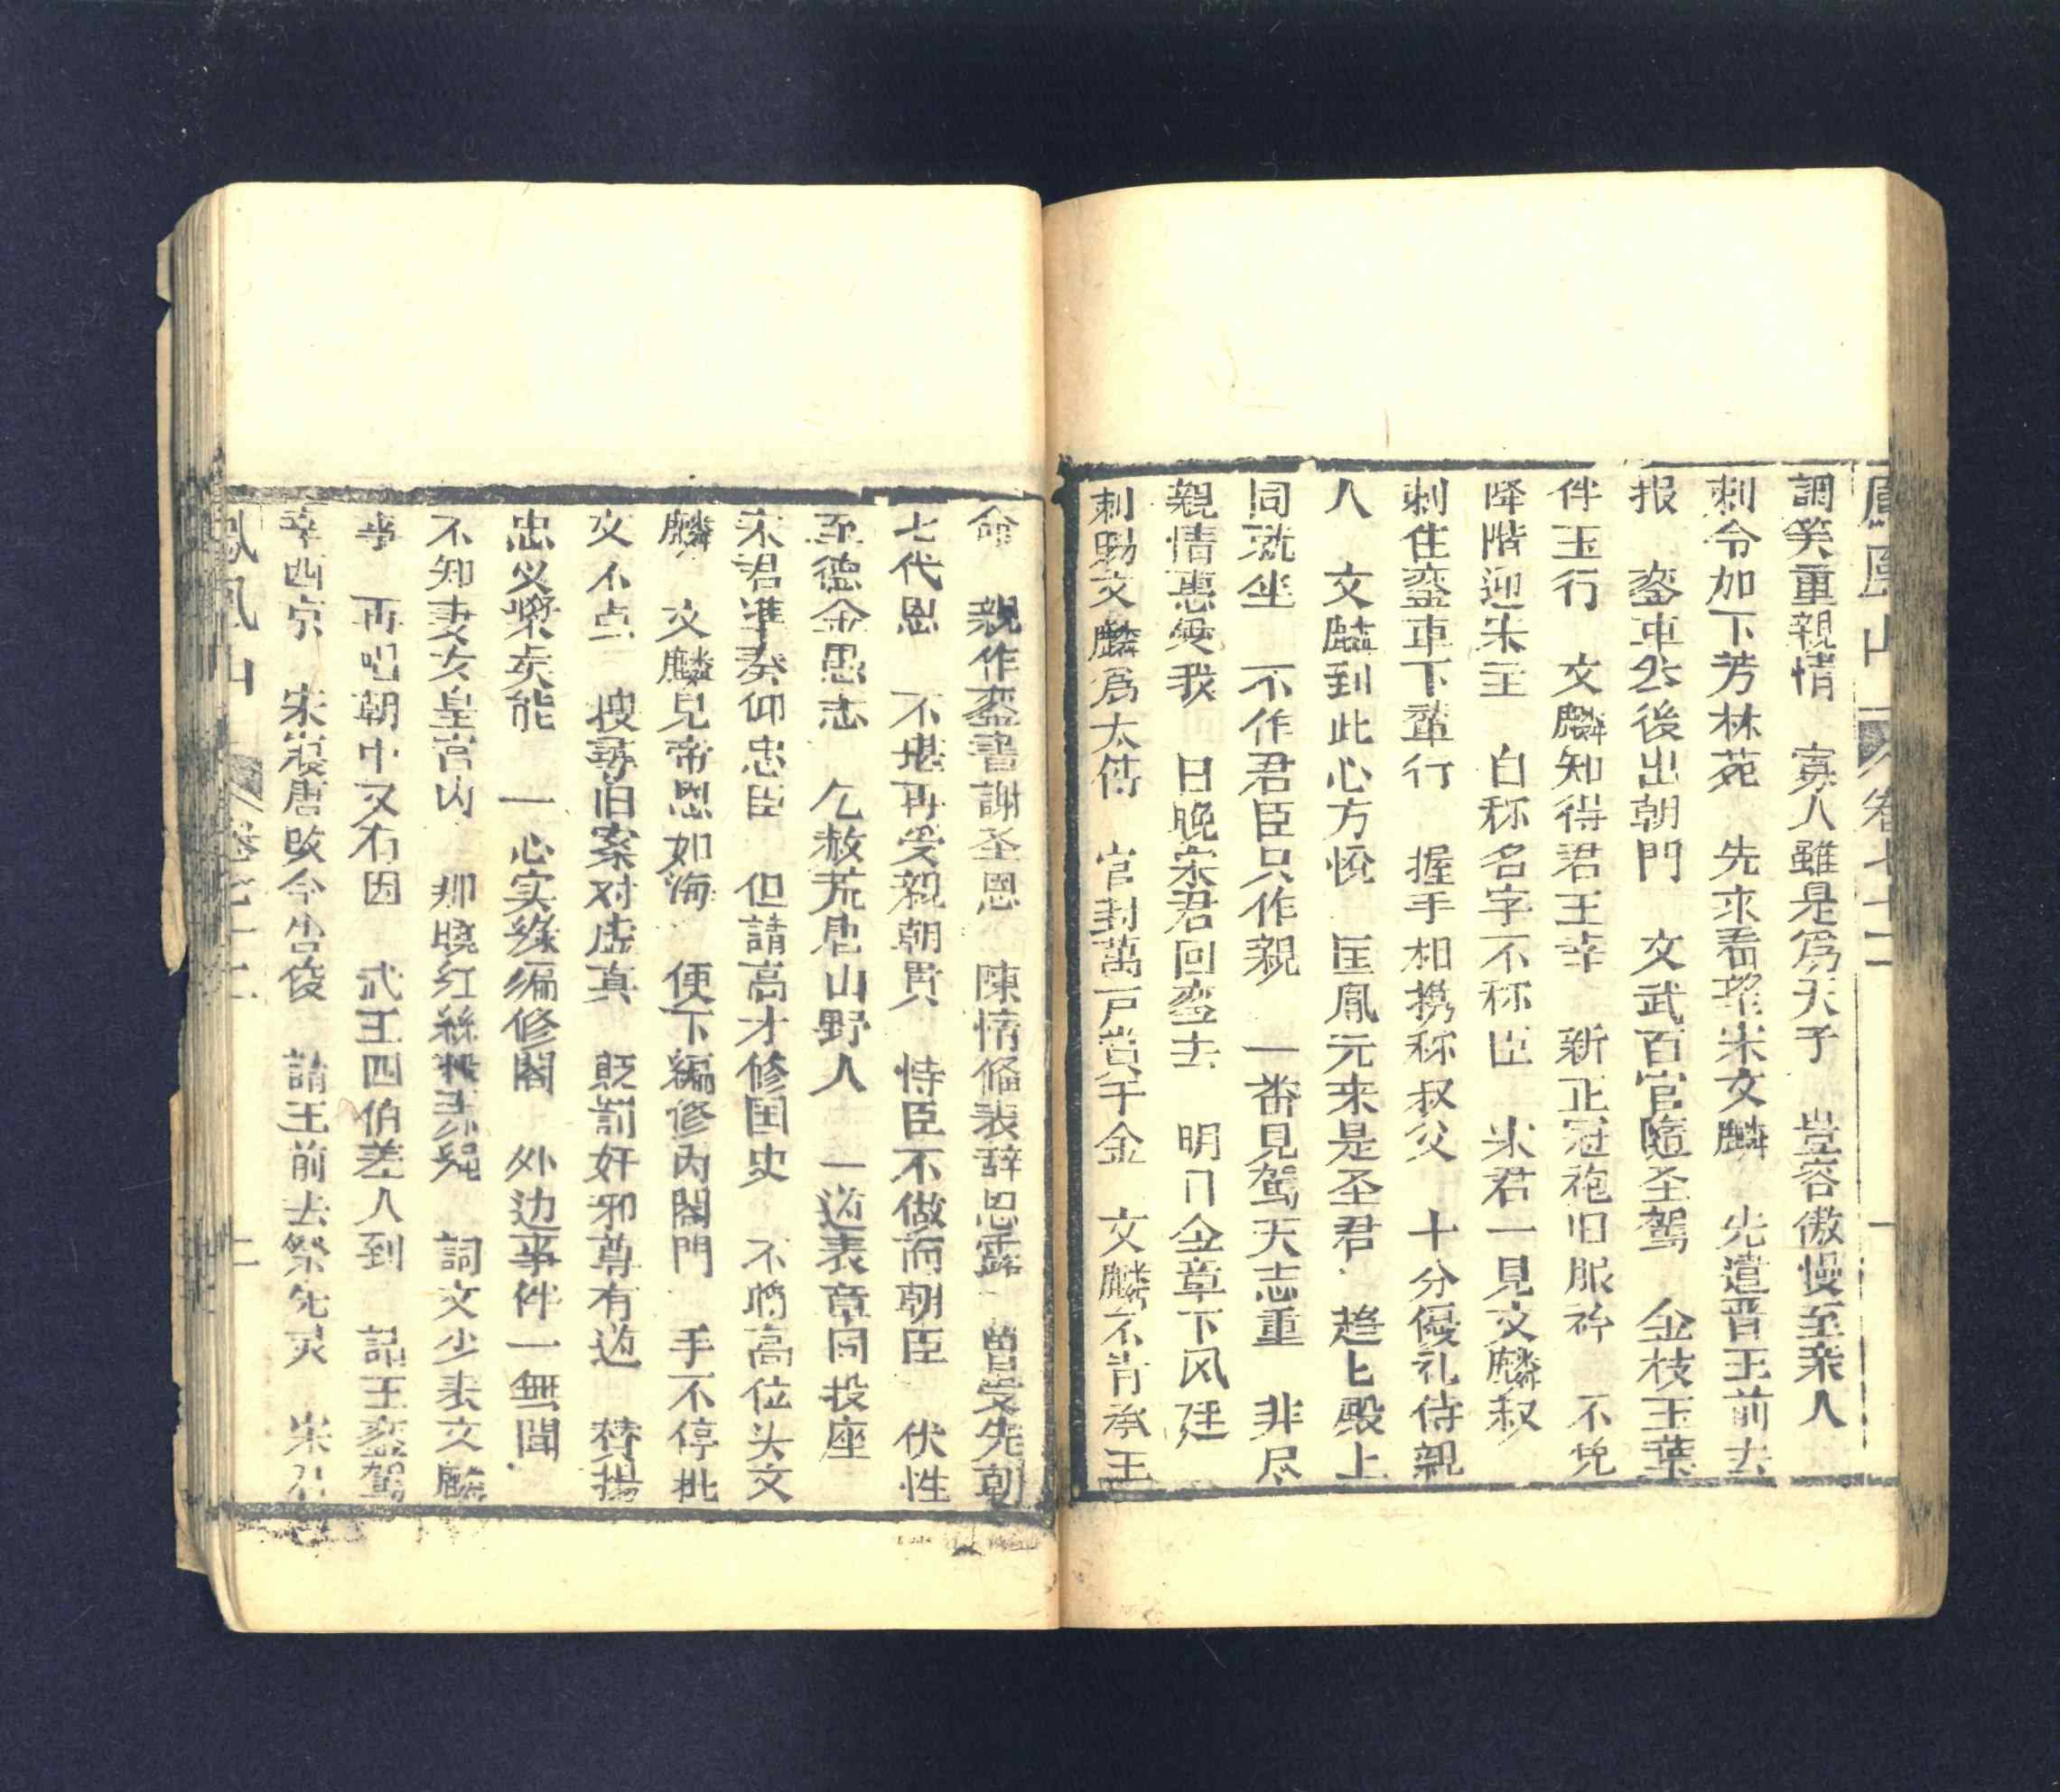 鳳凰山 卷七十二 一
調笑重親情 寡人雖是為天子 豈容傲慢至亲人
刺令加下芳林苑 先來看望宋文麟 先遣晋王前去
报 銮車然後出朝門 文武百官随圣駕 金枝玉葉
伴玉行 文麟知得君王幸 新正冠袍旧服衿 不免
降階迎宋主 白称名字不称臣 宋君一見文麟叔
刺住銮車下輦行 握手相携称叔父 十分優礼待親
人 文麟到此心方悅 匡胤元来是圣君 趋上殿上
同就坐 不作君臣只作親 一番見駕天志重 非尽
親情惠愛我 日晚宋君回銮去 明日金章下风廷
刺勅文麟為太傅 官封萬戶賞千金 文麟不肯承王
命 親作銮書謝圣恩 陳情修表辞恩露 曾受先朝
七代恩 不堪再受親朝貫 恃臣不做而朝臣 伏性
至德金愚志 乞赦荒唐山野人 一道表章同投座
宋君準奏仰忠臣 但請高才修国史 不聘高位头文
麟 文麟見帝恩如海 便下編修內閣門 手不停批
文不点 搜尋旧案对虚真 既罰奸邪尊有道 替揚
忠义樂矣能 一心实錄編修閣 外边事件一無聞
不知妻女皇宫内 那曉红絲 詞文少表文麟
事 再唱朝中又有因 武王四伯差人到 詔王銮駕
幸西京 宋襲唐 今告 請王前去祭先灵 宋君
鳳凰山 卷七十二 二